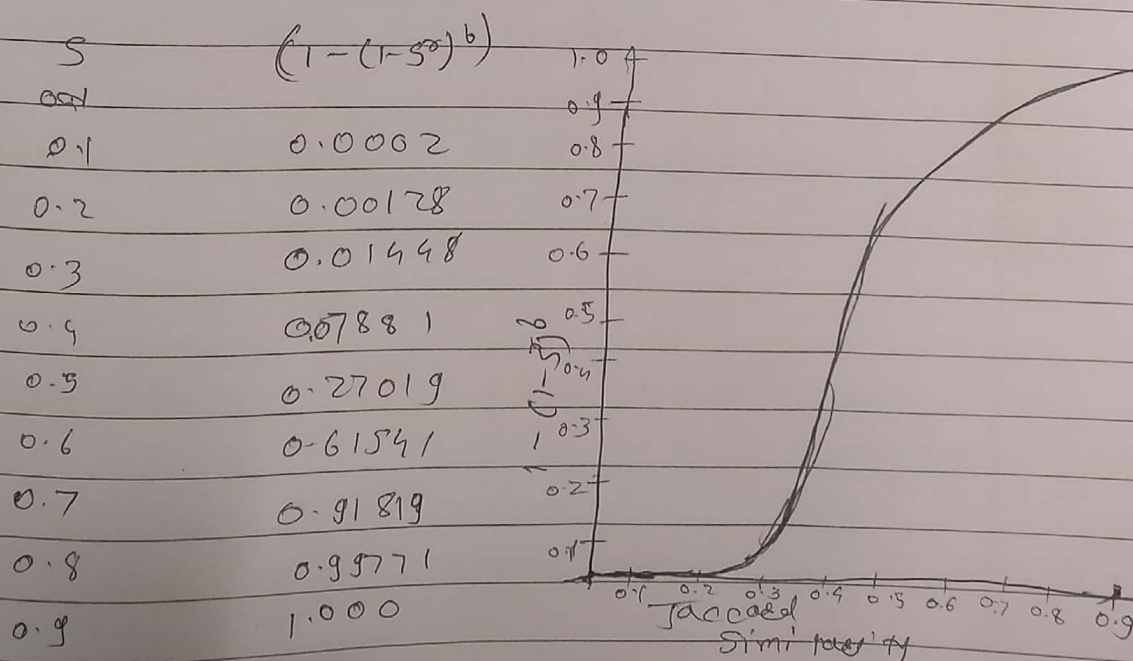 S (1-(1-sʳ)ᵇ)
0.1 0.0002
0.2 0.00128
0.3 0.01448
0.4 0.07881
0.5 0.27019
0.6 0.61541
0.7 0.91819
0.8 0.99771
0.9 1.000
1.0
0.9
0.8
0.7
0.6
0.5
0.4
0.3
0.2
0.1
0.1 0.2 0.3 0.4 0.5 0.6 0.7 0.8 0.9
Jaccard